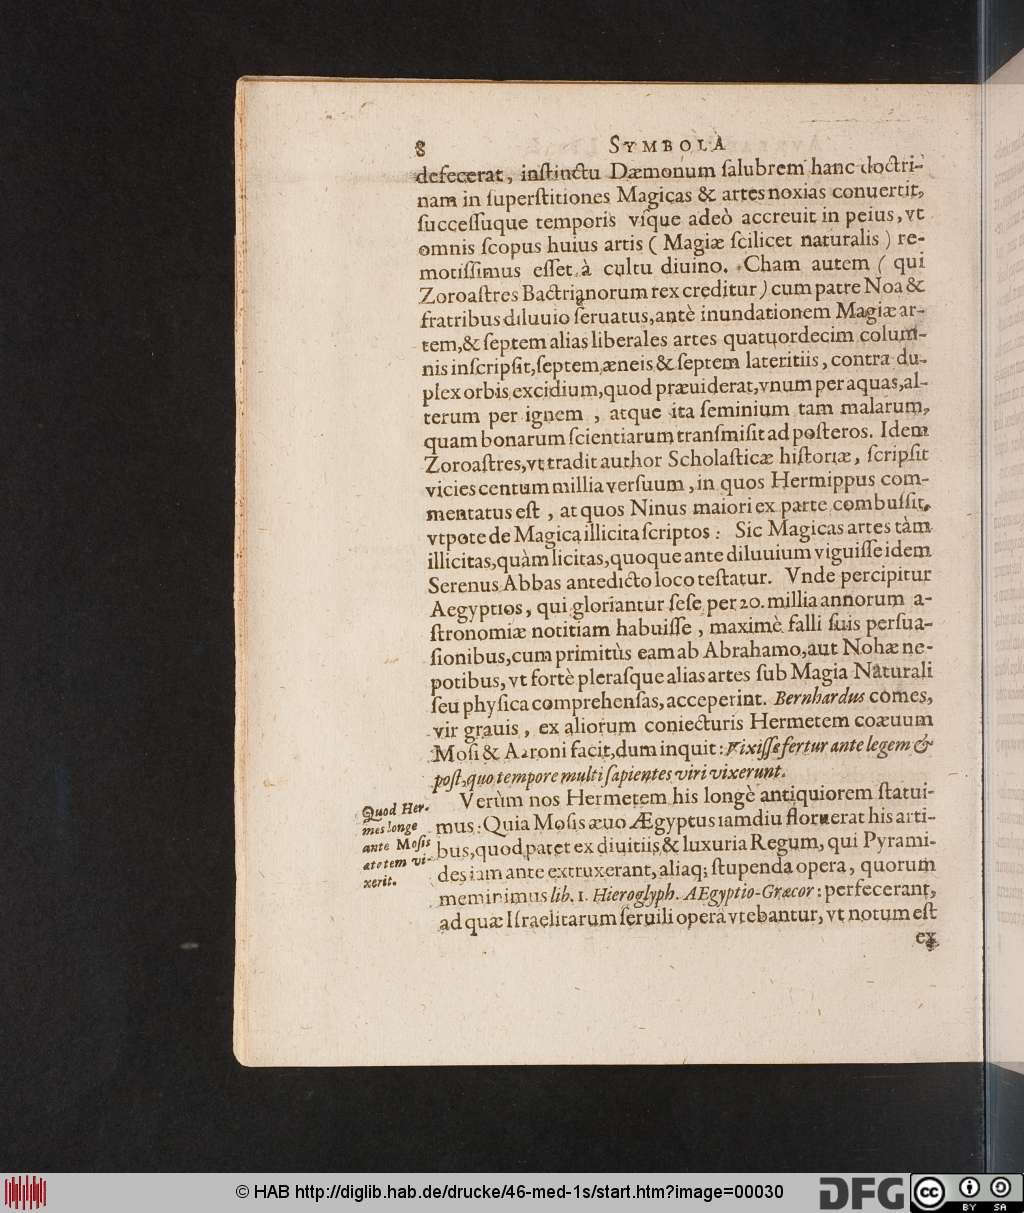 8 SYMBOLA
defecerat, inſtinctu Dæmonum ſalubrem hanc doctri-
nam in ſuperſtitiones Magicas & artes noxias conuertit,
ſucceſſuque temporis vſque adeò accreuit in peius, vt
omnis ſcopus huius artis ( Magiæ ſcilicet naturalis ) re-
motiſſimus eſſet à cultu diuino. Cham autem ( qui
Zoroaſtres Bactrianorum rex creditur ) cum patre Noa &
fratribus diluuio ſeruatus, antè inundationem Magiæ ar-
tem, & ſeptem alias liberales artes quatuordecim colum-
nis inſcripſit, ſeptem æneis & ſeptem lateritiis, contra du-
plex orbis excidium, quod præuiderat, vnum per aquas, al-
terum per ignem , atque ita ſeminium tam malarum,
quam bonarum ſcientiarum tranſmiſit ad poſteros. Idem
Zoroaſtres, vt tradit author Scholaſticæ hiſtoriæ, ſcripſit
vicies centum millia verſuum , in quos Hermippus com-
mentatus eſt , at quos Ninus maiori ex parte combuſſit,
vtpote de Magica illicita ſcriptos : Sic Magicas artes tàm
illicitas, quàm licitas, quoque ante diluuium viguiſſe idem
Serenus Abbas antedicto loco teſtatur. Vnde percipitur
Aegyptios, qui gloriantur ſeſe per 20. millia annorum a-
ſtronomiæ notitiam habuiſſe , maximè falli ſuis perſua-
ſionibus, cum primitùs eam ab Abrahamo, aut Nohæ ne-
potibus, vt fortè pleraſque alias artes ſub Magia Naturali
ſeu phyſica comprehenſas, acceperint. Bernhardus comes,
vir grauis , ex aliorum coniecturis Hermetem coæuum
Moſi & Aaroni facit, dum inquit : Vixiſſe fertur ante legem &
poſt, quo tempore multi ſapientes viri vixerunt.
Verùm nos Hermetem his longè antiquiorem ſtatui-
mus : Quia Moſis æuo Ægyptus iamdiu floruerat his arti-
bus, quod patet ex diuitiis & luxuria Regum, qui Pyrami-
des iam ante extruxerant, aliaq; ſtupenda opera , quorum
meminimus lib. 1. Hieroglyph. AEgyptio-Græcor : perfecerant,
ad quæ Iſraelitarum ſeruili opera vtebantur, vt notum eſt
ex
Quod Her-
mes longe
ante Moſis
ætatem vi-
xerit.
© HAB http://diglib.hab.de/drucke/46-med-1s/start.htm?image=00030
DFG
cc BY SA